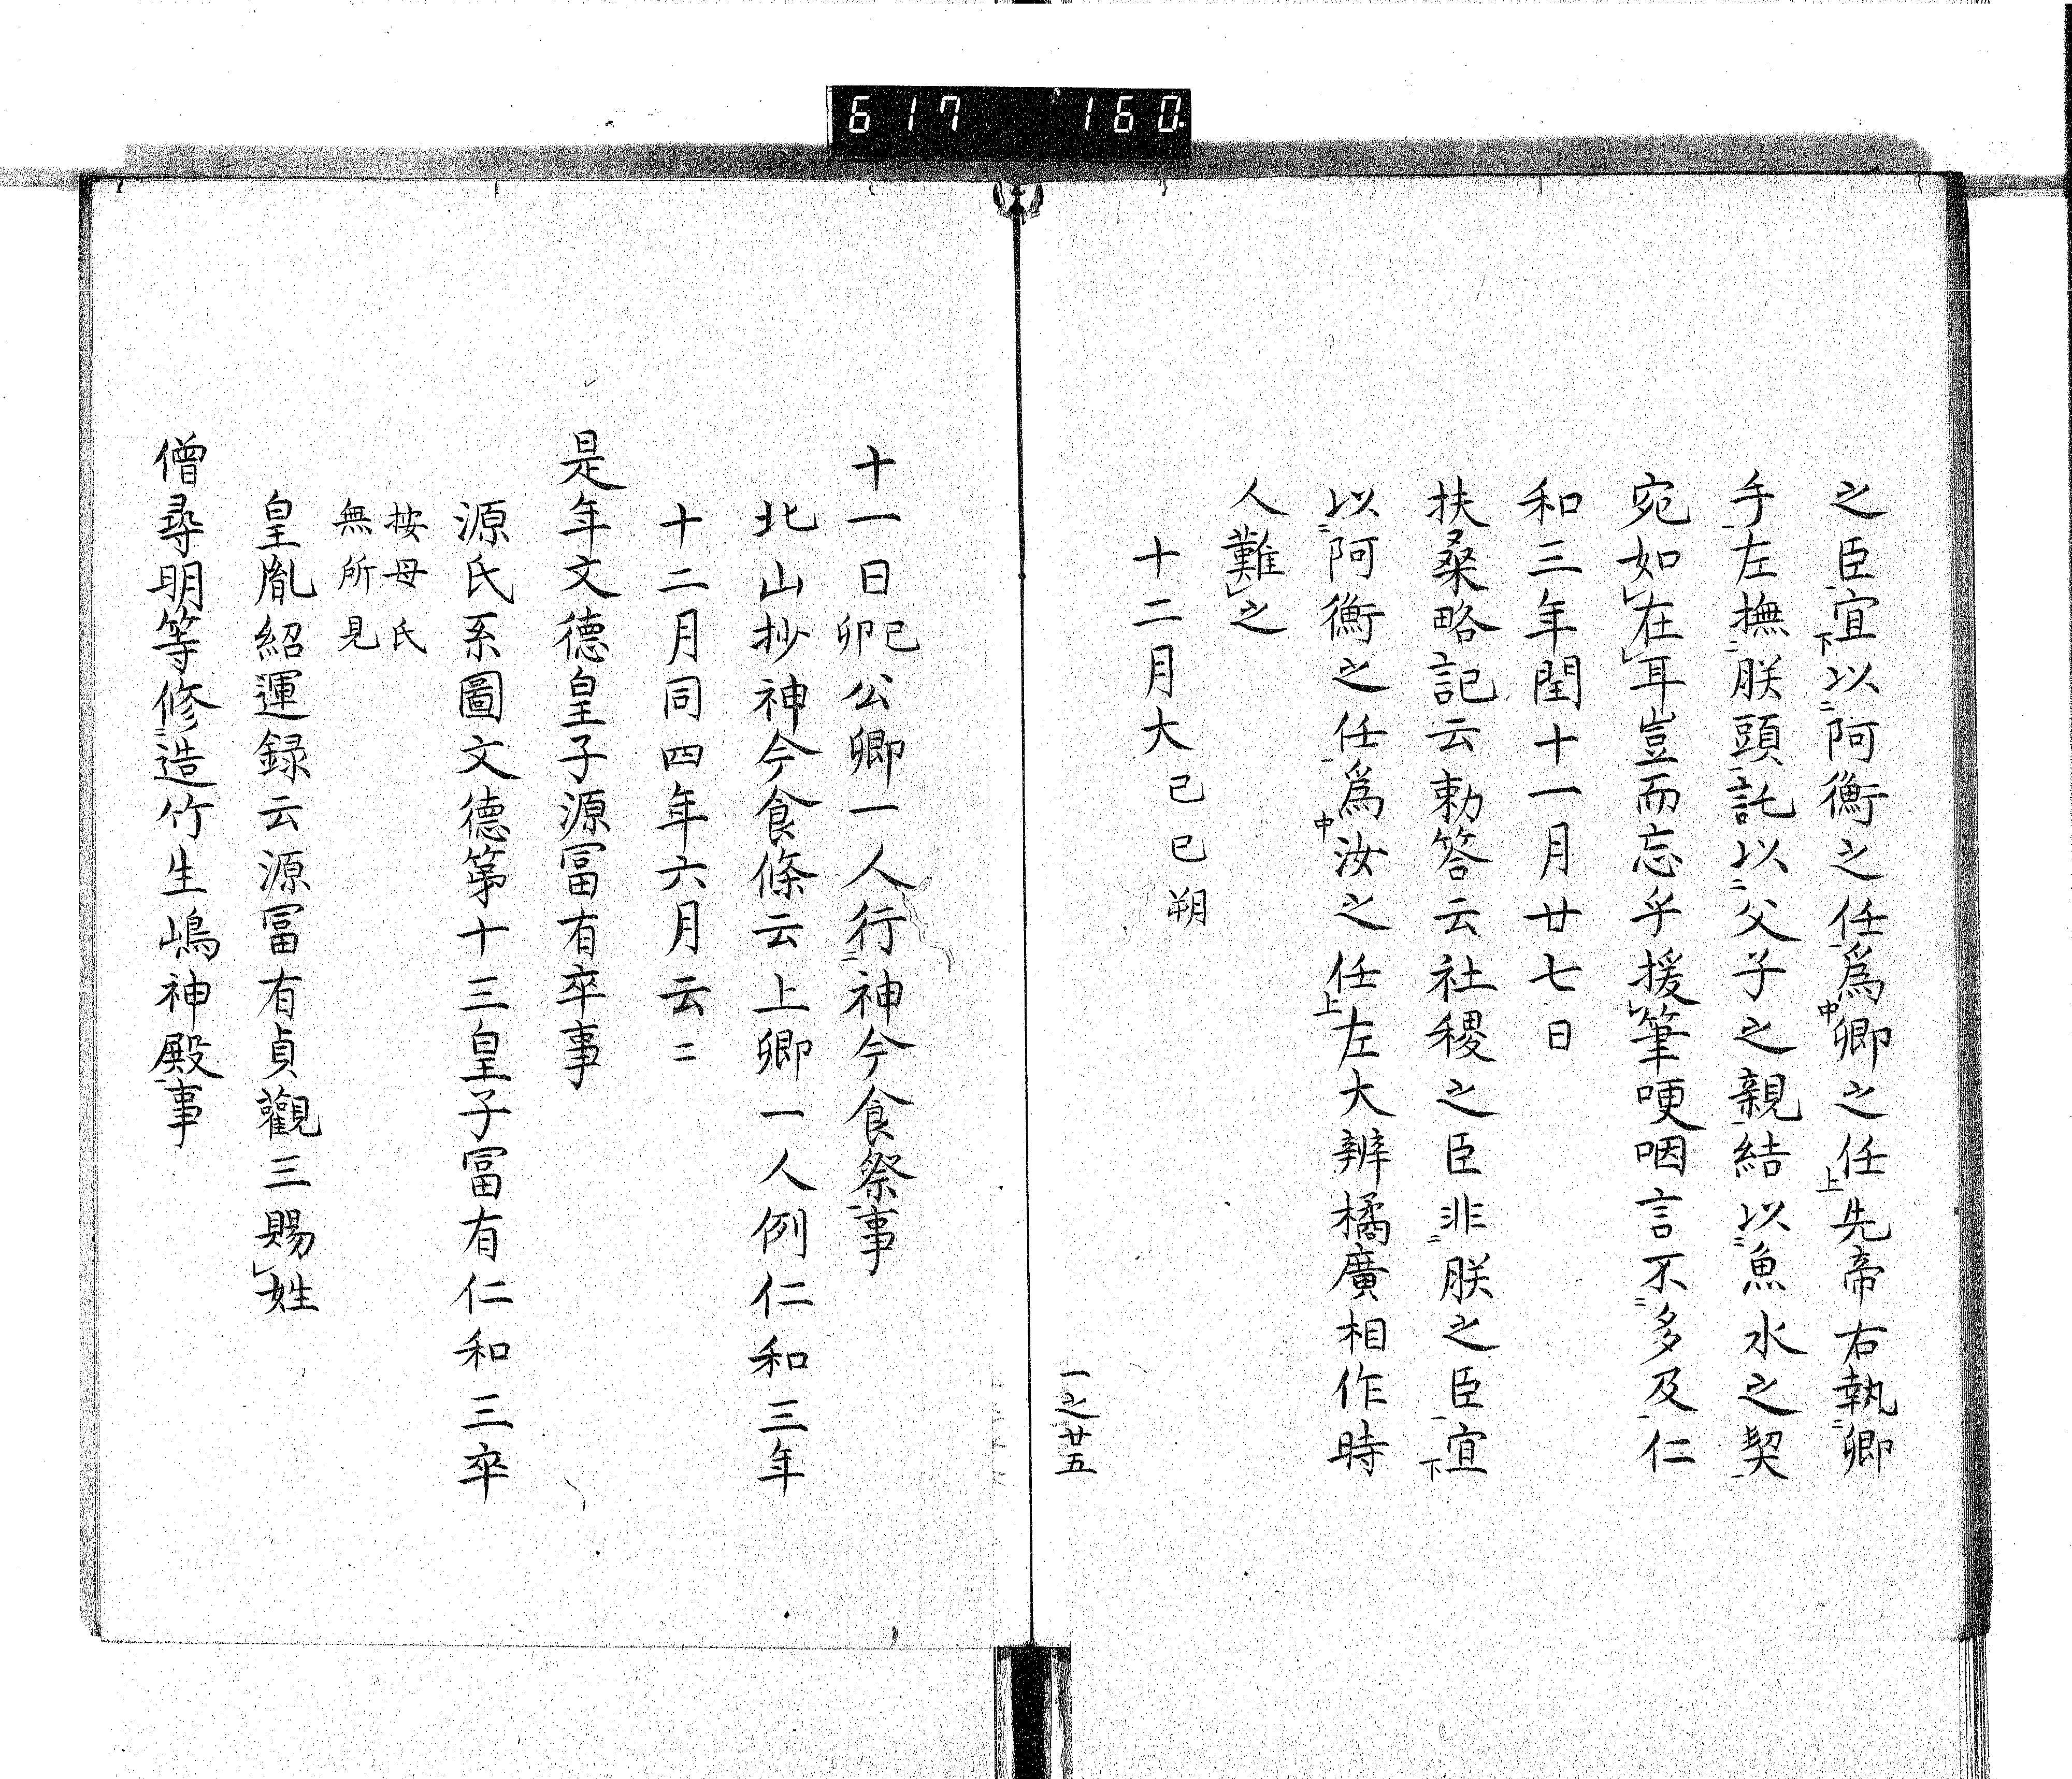 617 160.
之臣宜下以二阿衡之任一為中卿之任上先帝右執二卿
手一左撫二朕頭一託以二父子之親一結以二魚水之契一
宛如レ在レ耳豈而忘乎援レ筆哽咽言不二多及一仁
和三年閏十一月廿七日
扶桑略記云勅答云社稷之臣非二朕之臣一宜下
以二阿衡之任一為中汝之任上左大辨橘廣相作時
人難レ之
十二月大己巳朔
一之廿五
十一日己卯公卿一人行二神今食祭一事
北山抄神今食條云上卿一人例仁和三年
十二月同四年六月云〻
是年文德皇子源冨有卒事
源氏系圖文德第十三皇子冨有仁和三卒
按母氏
無所見
皇胤紹運録云源冨有貞觀三賜レ姓
僧尋明等修二造竹生嶋神殿一事